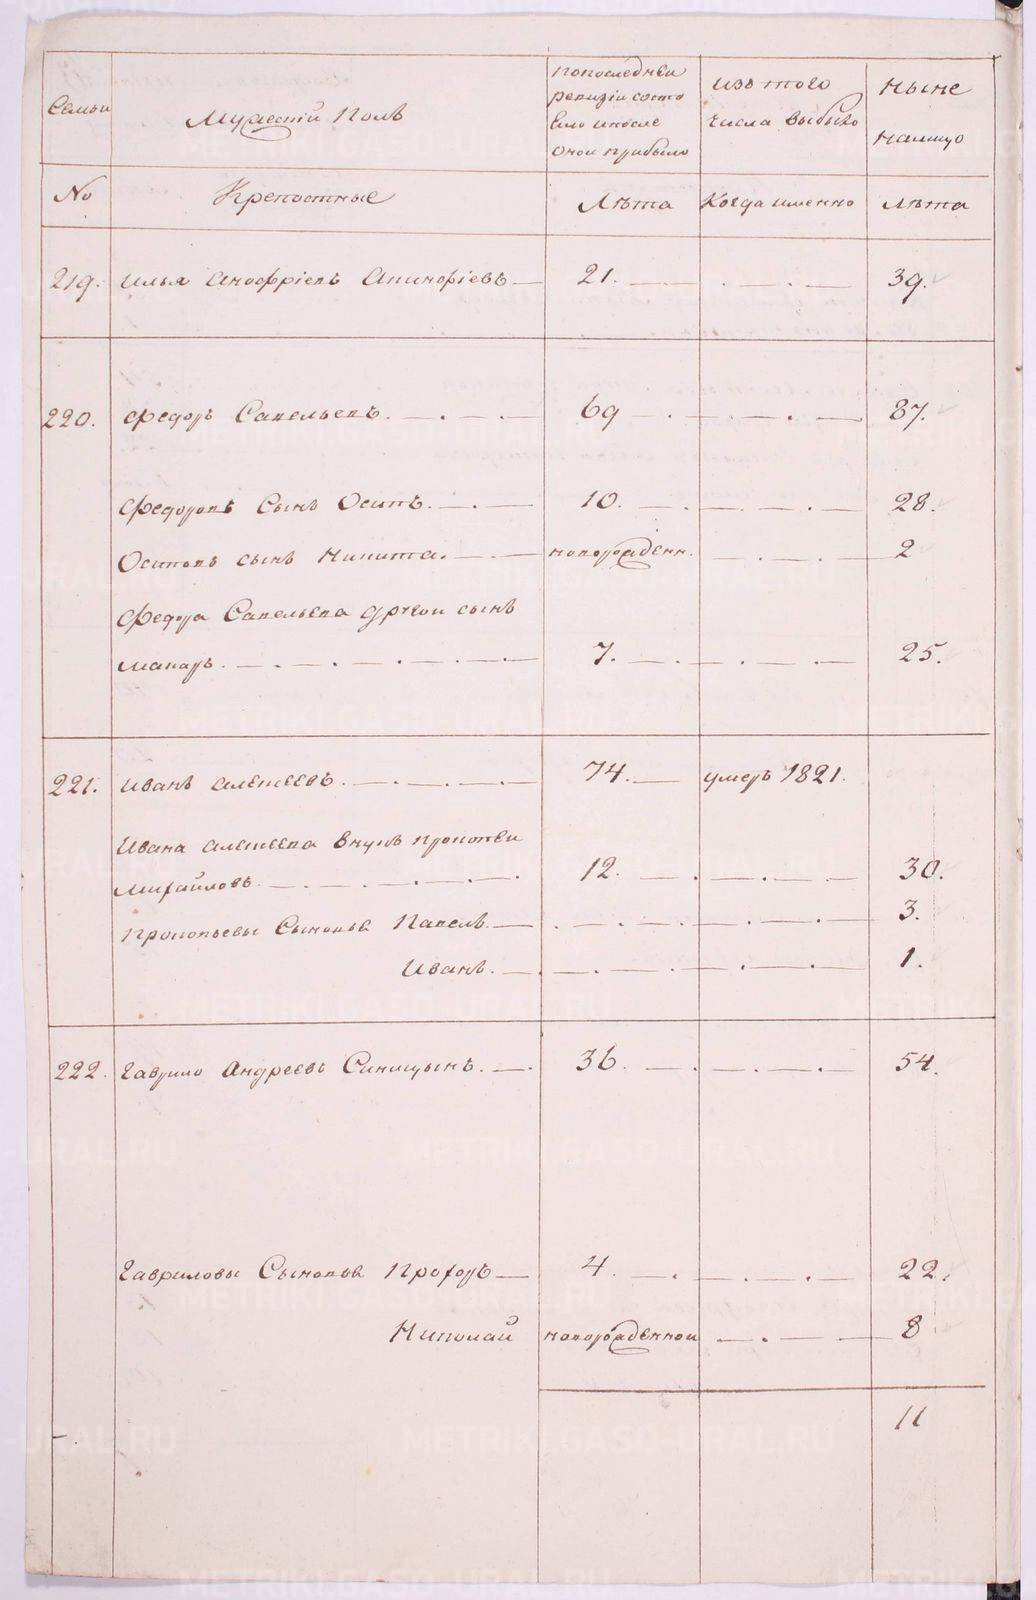 Семьи
Мужескiй Полъ
Попоследнеи
ревизiи состо
ело ипосле
онои прибыло
изъ того
числа выбыло
Ныне
Налицо
No
Крепостные
Лѣта
Когда именно
Лѣта
219. Илья Анофрiевъ 21. 39.
220. Федоръ Савельевъ. 69 87.
Федоровъ Сынъ Осипъ. 10. 28.
Осиповъ сынъ Никита. новорожденн. 2
Федора Савельева другои сынъ
Макаръ. 7. 25.
221. Иванъ Алексеевъ. 74. умеръ 1821.
Ивана Алексеева внукъ Прокопеи
Михайловъ. 12. 30.
Прокопьевы Сыновья Павелъ. 3.
Иванъ. 1.
222. Гаврило Андреевъ Синицынъ. 36. 54.
Гавриловы Сыновья Прохоръ 4. 22.
Николай новорожденнои 8
11
METRIKI.GASO-URAL.RU